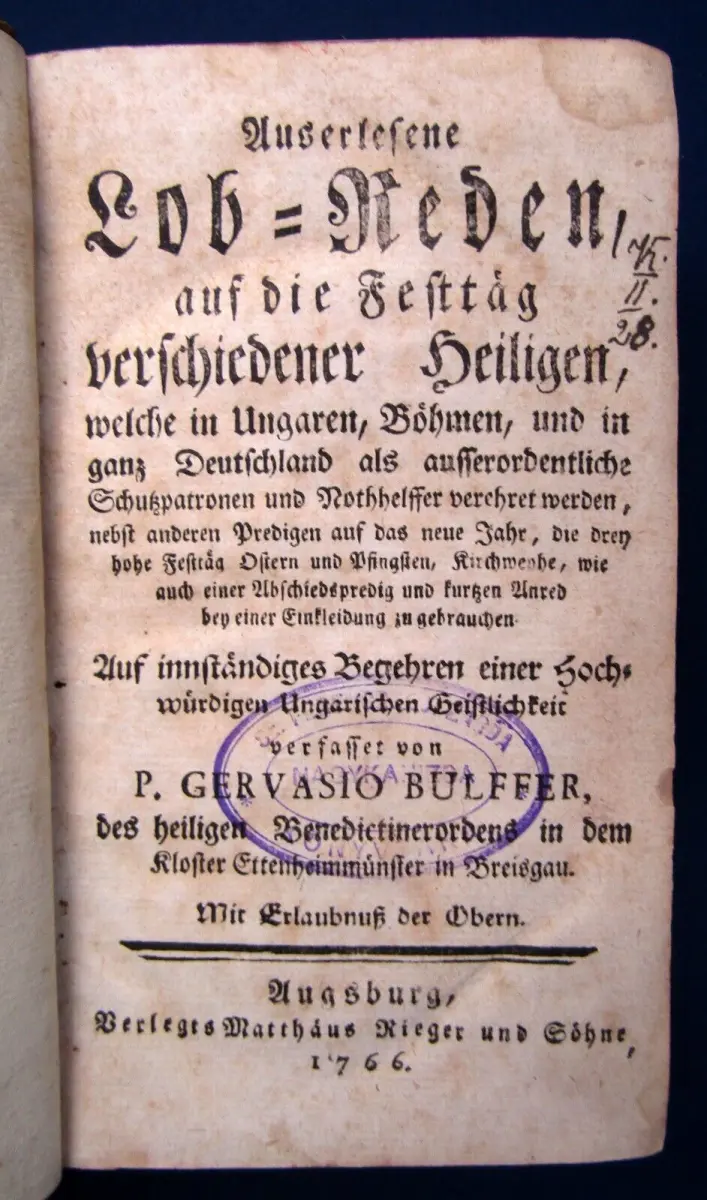 Auserlesene
Lob-Reden,
auf die Festtäg
verschiedener Heiligen,
welche in Ungaren, Böhmen, und in
ganz Deutschland als ausserordentliche
Schutzpatronen und Nothhelffer verehret werden,
nebst anderen Predigen auf das neue Jahr, die drey
hohe Festtäg Ostern und Pfingsten, Kirchweyhe, wie
auch einer Abschiedspredig und kurtzen Anred
bey einer Einkleidung zu gebrauchen.
Auf innständiges Begehren einer Hoch-
würdigen Ungarischen Geistlichkeit
verfasset von
P. GERVASIO BULFFER,
des heiligen Benedictinerordens in dem
Kloster Ettenheimmünster in Breisgau.
Mit Erlaubnuß der Obern.
Augsburg,
Verlegts Matthäus Rieger und Söhne,
1766.
II.
28.